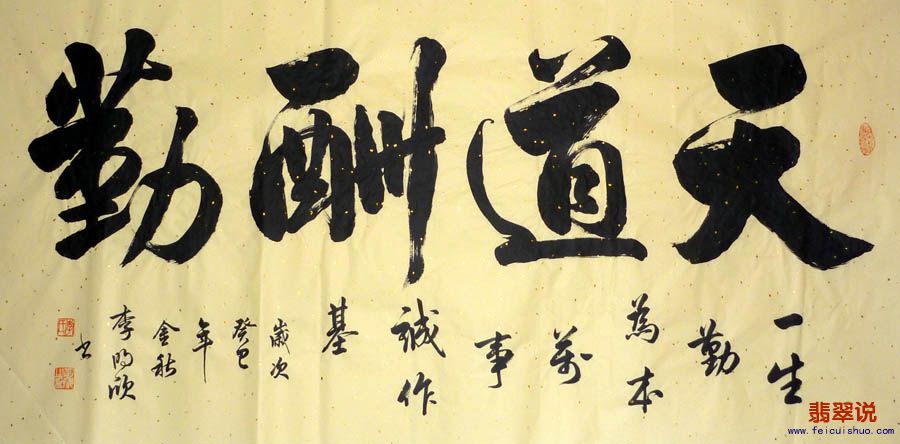 天道酬勤
一生
勤
為本
萬
事
誠作
基
歲次
癸巳
年
金秋
李明欣
书
翡翠说
www.feicuishuo.com